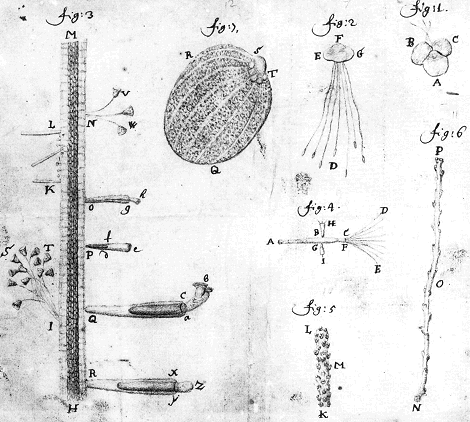 fig: 3
fig: 7.
fig: 2
fig: 1.
M
R
S
T
Q
F
E
G
D
B
C
A
L
N
V
W
K
fig: 6
P
O
N
O
g
h
P
f
d
e
fig: 4.
A
B
H
C
D
G
F
I
E
S
T
I
Q
C
a
B
fig: 5
L
M
K
R
X
y
Z
H